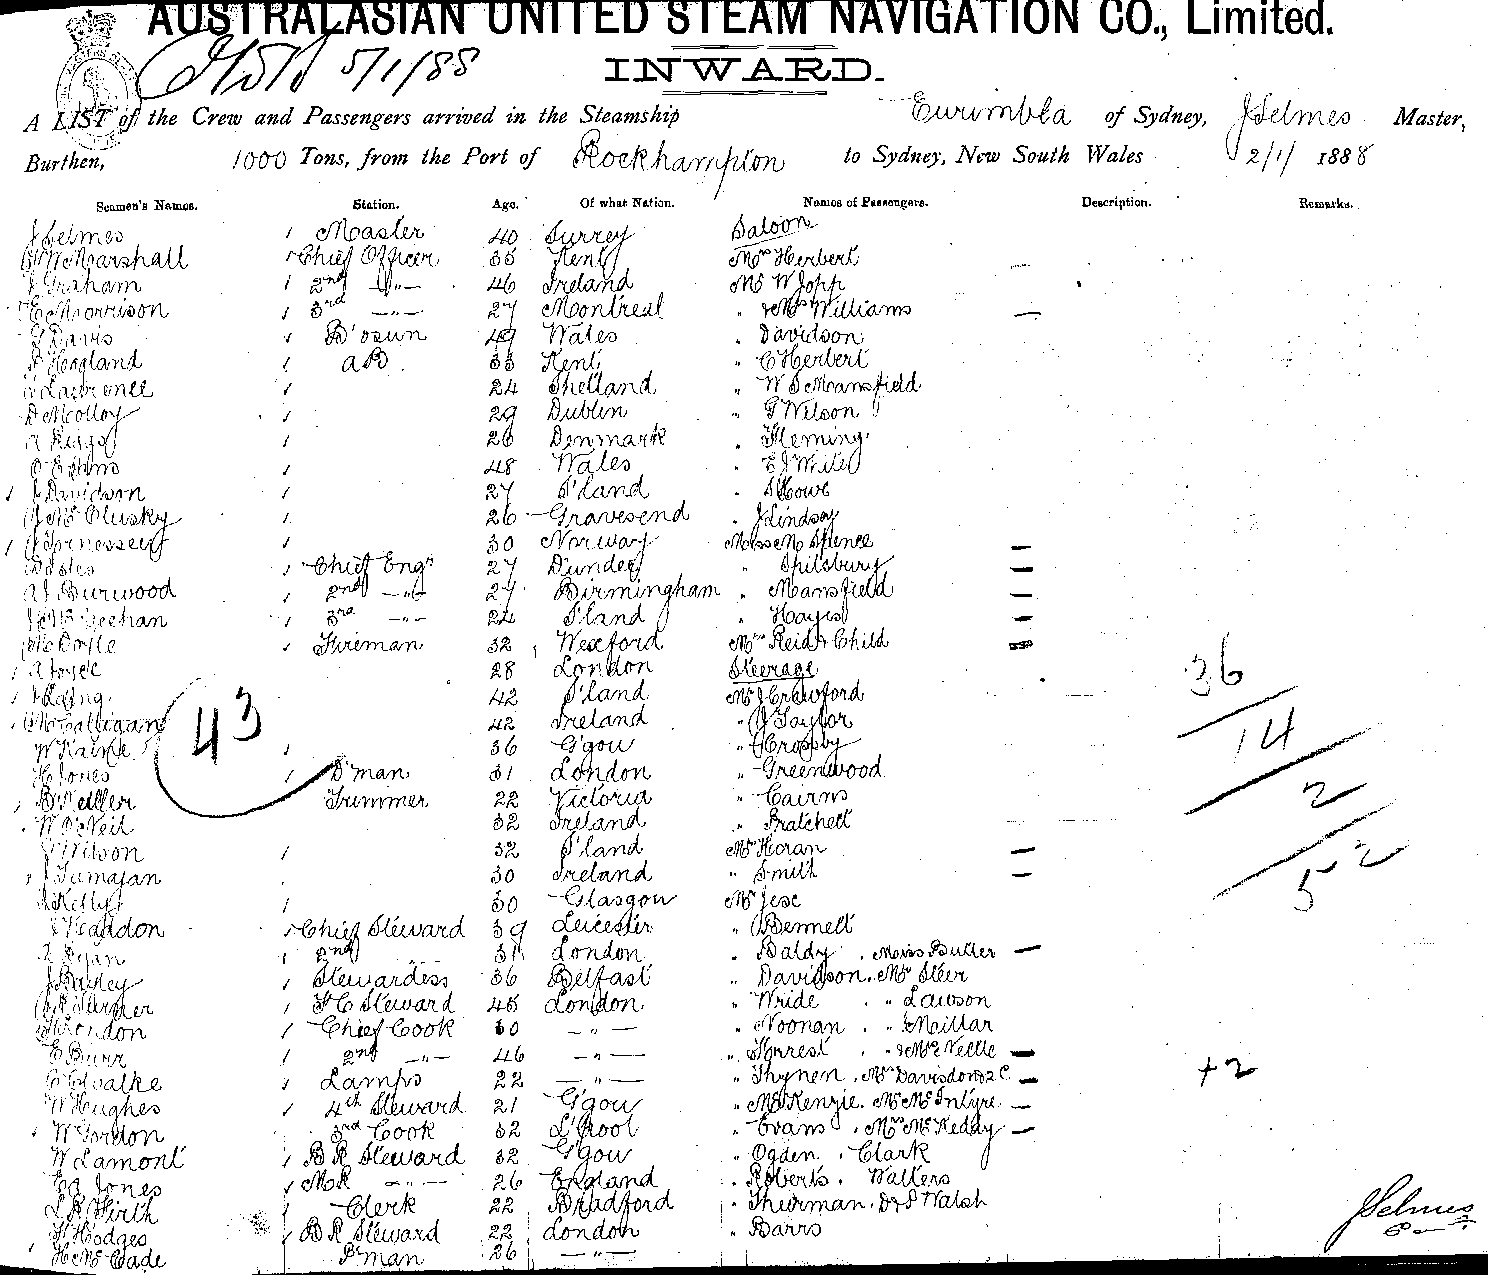 AUSTRALASIAN UNITED STEAM NAVIGATION CO., Limited.
5/1/88
INWARD.
A LIST of the Crew and Passengers arrived in the Steamship Eurimbla of Sydney, J Selmes Master,
Burthen, 1000 Tons, from the Port of Rockhampton to Sydney, New South Wales 2/1/ 1888
Seamen's Names. Station. Age. Of what Nation. Names of Passengers. Description. Remarks.
J Selmes Master 40 Surrey Saloon
W Marshall Chief Officer 35 Kent Mrs Herbert
J Graham 2nd -"- 46 Ireland Mr W Jopp
E Morrison 3rd -"- 27 Montreal " & Mrs Williams
G Davis B'osun 49 Wales " Davidson
Hogland AB 33 Kent " C Herbert
Lawrence 24 Shetland " W S Mansfield
D McColloy 29 Dublin " G Wilson
26 Denmark " Fleming
48 Wales " E J White
J Davidson 27 S'land " Howe
J McClusky 26 Gravesend " J Lindsay
30 Norway Misses M Spence
Chief Engr 27 Dundee " Spilsbury
A J Burwood 2nd -"- 27 Birmingham " Mansfield
3rd -"- 24 S'land " Hayes
Mc Doyle Fireman 32 Wexford Mrs Reid & Child
A Joyce 28 London Steerage
Laing 42 S'land Mr J Crawford 36
42 Ireland " J Taylor
W Kaine 43 36 G'gow " Crosby 14
H Jones D'man 31 London " Greenwood
Trimmer 22 Victoria " Cairns 2
W McNeil 32 Ireland " Bratchell
J Wilson 32 S'land Mrs Horan
30 Ireland " Smith 52
J Kelly 30 Glasgow Mr Jese
Chief Steward 39 Leicester " Bennett
Ryan 2nd " 31 London " Baldy . Miss Butler
J Bailey Stewardess 36 Belfast " Davidson . Mr Steer
Turner F C Steward 45 London " Wride . " Lawson
Chief Cook 30 -"- " Noonan . " Maillar
E Burr 2nd -"- 46 -"- " Forrest . " & Mrs Nettle
Lamps 22 -"- " Thynen . Mrs Davisdon & 2 C +2
W Hughes 4th Steward 21 G'gow " McKenzie . Mrs McIntyre
W Gordon 3rd Cook 32 L'pool " Evans . Mrs McKeddy
W Lamont B R Steward 32 G'gow " Ogden . Clark
Jones M R -"- 26 England . Roberts . Walters
L R Firth Clerk 22 Bradford . Thurman . D & P Walsh
F Hodges B R Steward 22 London . Barrs
H McCade P'man 26 -"-
J Selmes